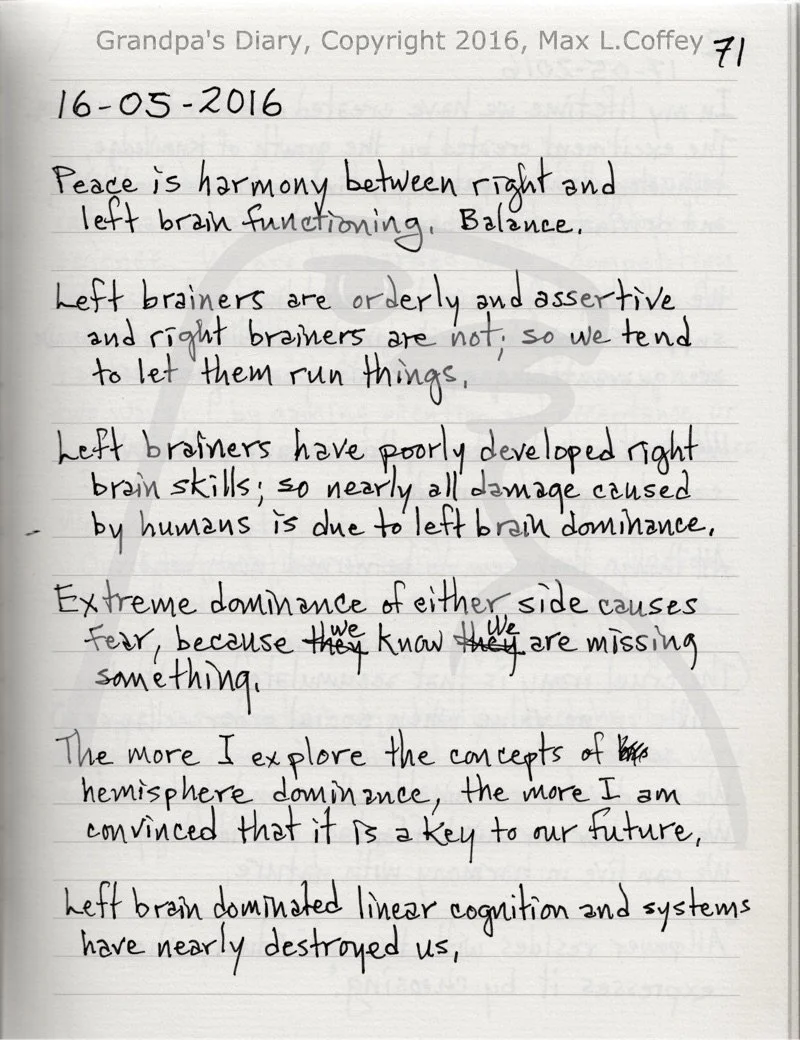 Grandpa's Diary, Copyright 2016, Max L.Coffey
71
16-05-2016
Peace is harmony between right and
left brain functioning. Balance.
Left brainers are orderly and assertive
and right brainers are not; so we tend
to let them run things.
Left brainers have poorly developed right
brain skills; so nearly all damage caused
by humans is due to left brain dominance.
Extreme dominance of either side causes
Fear, because we know we are missing
something.
The more I explore the concepts of
hemisphere dominance, the more I am
convinced that it is a key to our future.
Left brain dominated linear cognition and systems
have nearly destroyed us.